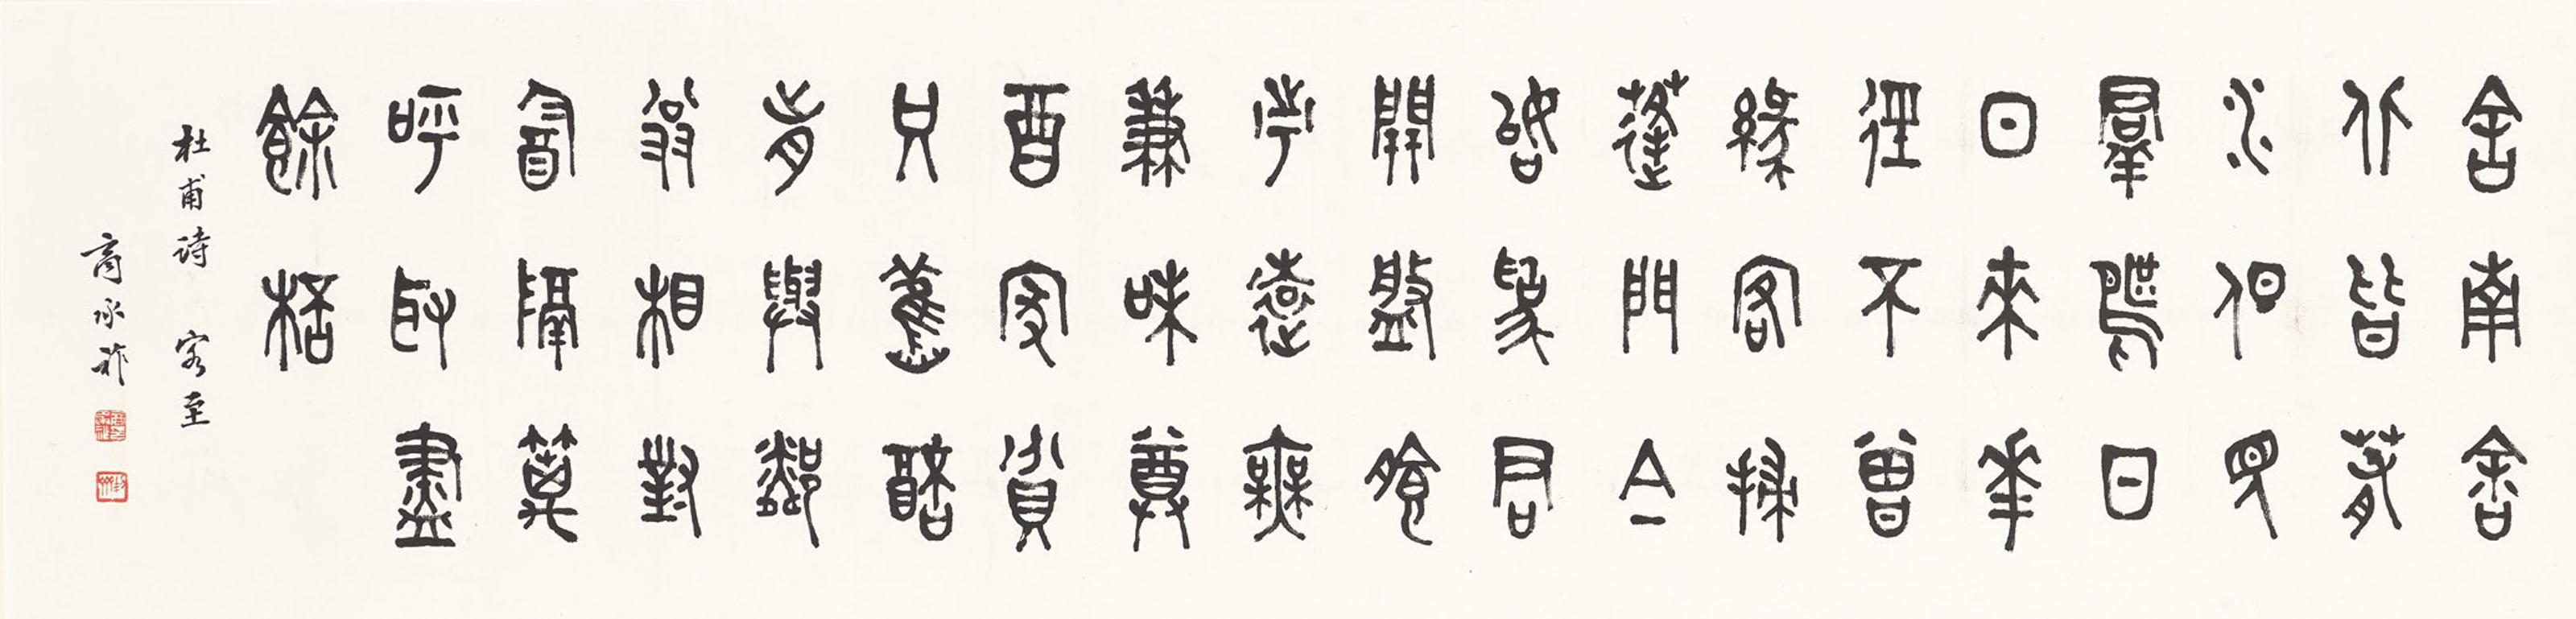 舍南舍
北皆春
水但見
羣鷗日
日來華
徑不曾
緣客掃
蓬門今
始為君
開盤飧
市遠無
兼味尊
酉家貧
只舊醅
肯與鄰
翁相對
飲隔籬
呼取盡
餘桮
杜甫诗 客至
商承祚